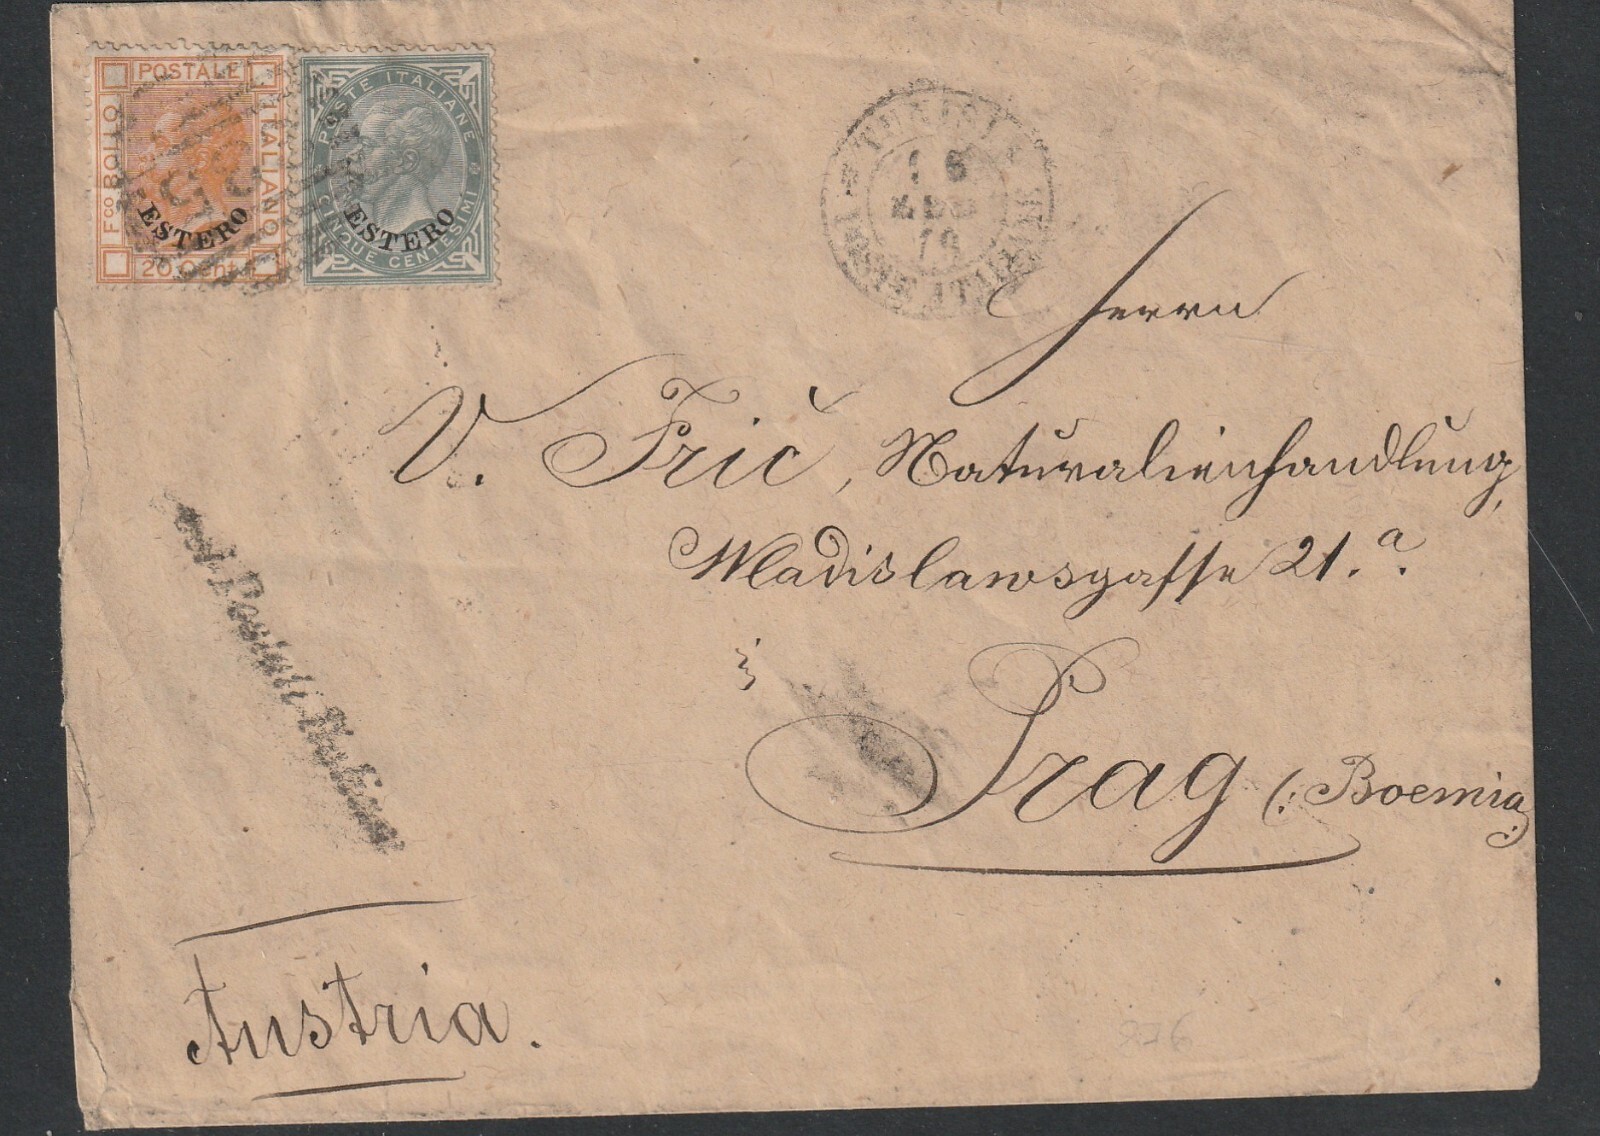 POSTALE
Fco BOLLO
ITALIANO
20 Cent
ESTERO
POSTE ITALIANE
CINQUE CENTESIMI
ESTERO
TUNISI
POSTE ITALIANE
Herrn
V. Frič, Naturalienhandlung,
Wladislawsgasse 21.a
Prag (: Boemia :)
Austria.
276